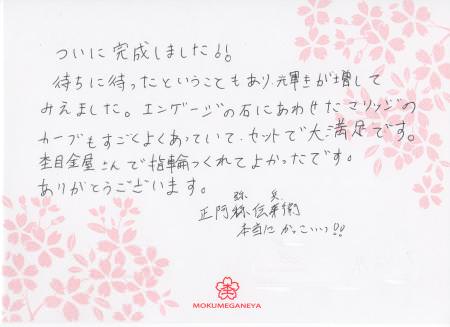 ついに完成しました!!
待ちに待ったということもあり、輝きが増して
みえました。エンゲージの石にあわせたマリッジの
カーブもすごくよくあっていて、セットで大満足です。
杢目金屋さんで指輪つくれてよかったです。
ありがとうございます。
正阿弥伝兵衛
本当にかっこいい!!
MOKUMEGANEYA